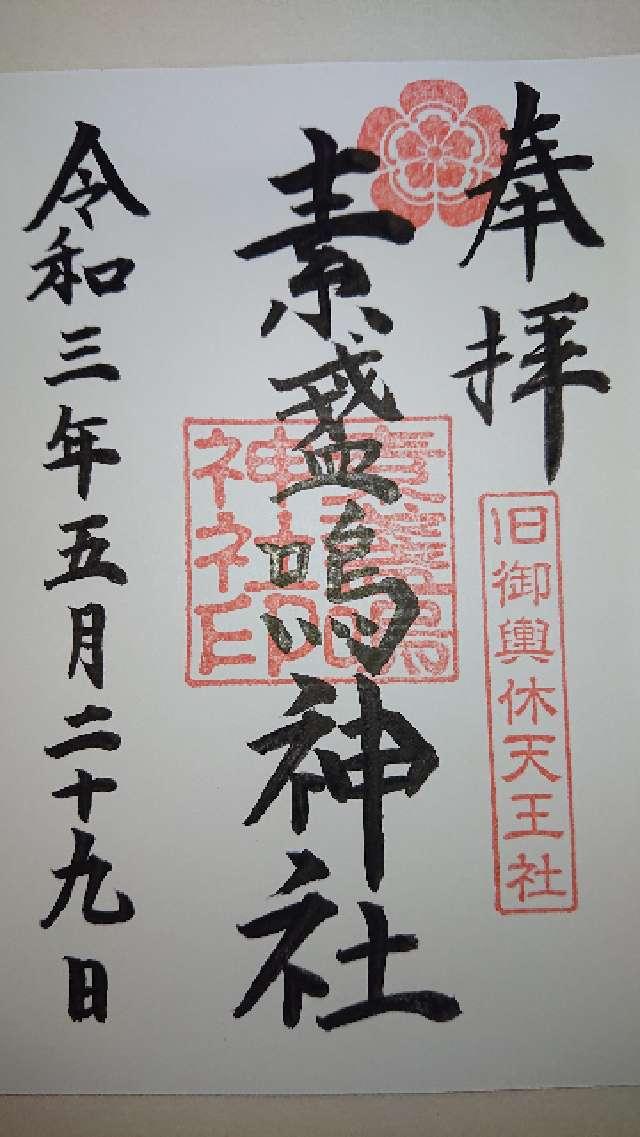 奉拝
旧御輿休天王社
素盞嗚神社
素盞嗚
神社
令和三年五月二十九日